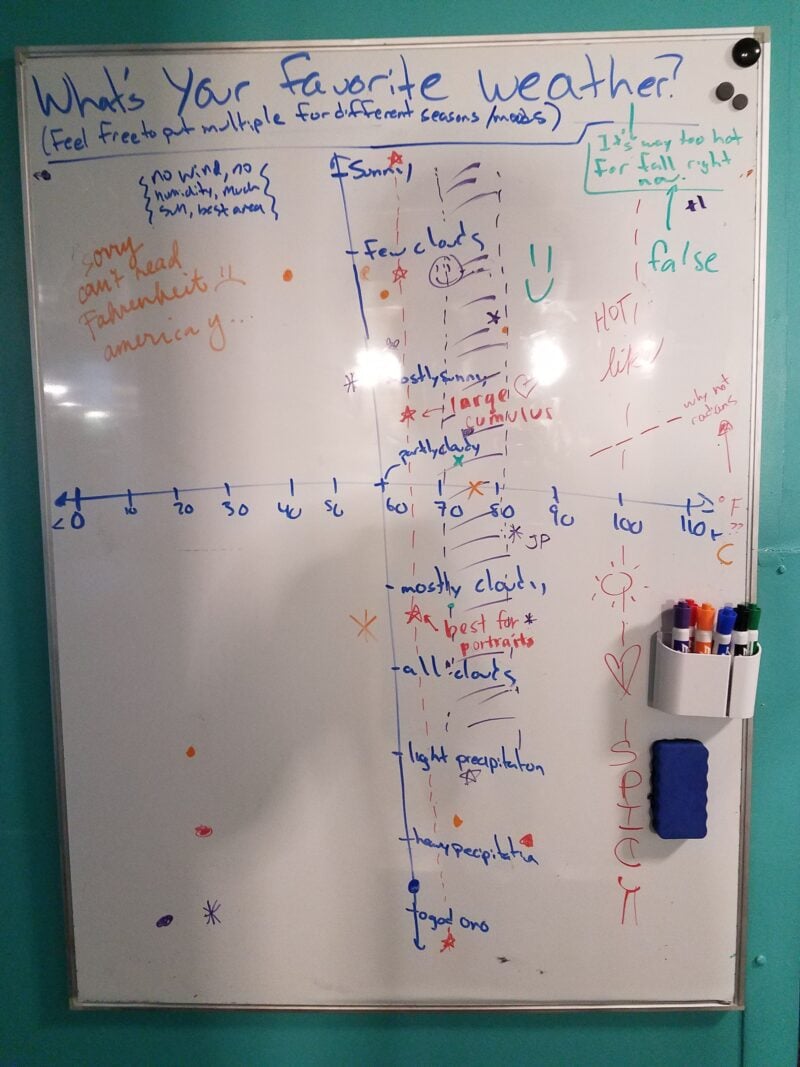 What's Your favorite weather?
(Feel free to put multiple for different seasons/moods)
It's way too hot
for fall right
now.
+1
false
no wind, no
humidity, much
sun, best area
sorry
can't read
Fahrenheit
america y...
Sunny
few clouds
mostly sunny
large
cumulus
partly cloudy
HOT,
like
why not
radians
<0
10
20
30
40
50
60
70
80
90
100
110+
°F
??
C
JP
mostly cloudy
best for
portraits
all clouds
light precipitation
heavy precipitation
oh god oh no
SPICY